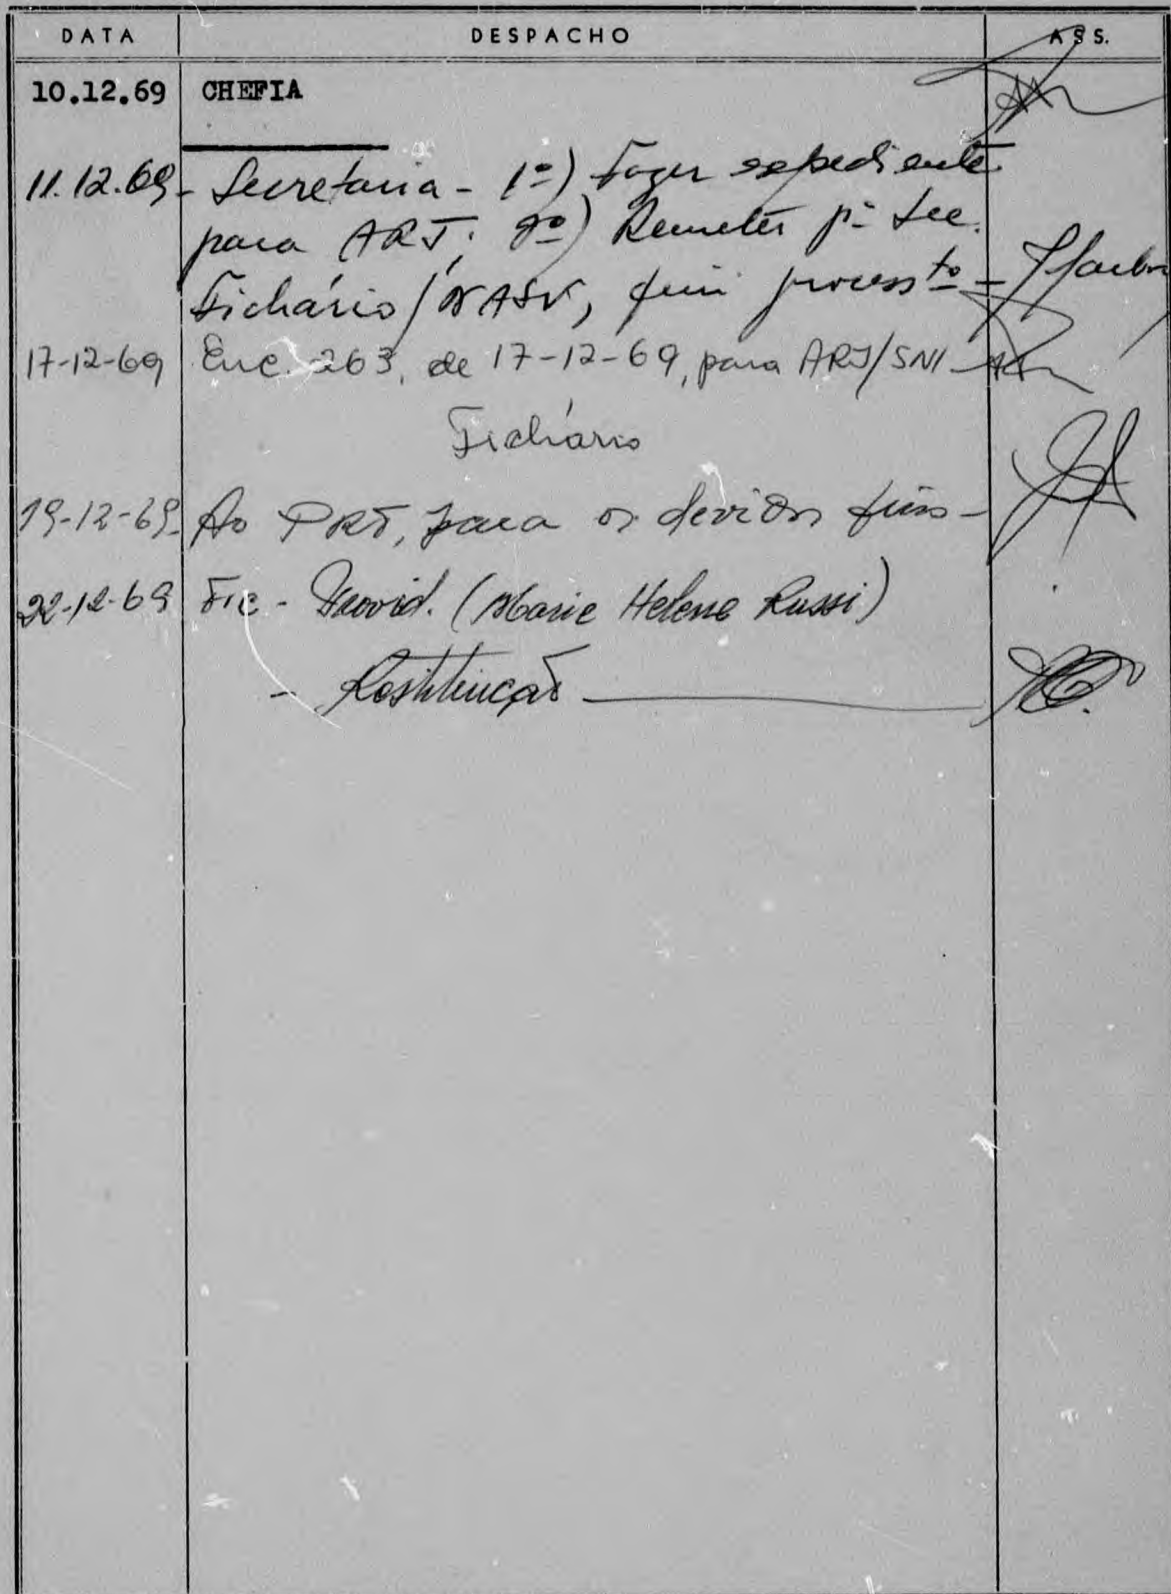 DATA DESPACHO ASS.
10.12.69 CHEFIA
11.12.69 - Secretaria - 1º) Fazer expediente
para ARJ; 2º) Remeter pª Sec.
Fichário/ fim process.to -
17-12-69 Enc. 263, de 17-12-69, para ARJ/SNI -
Fichário
19-12-69. Ao para os devidos fins -
22-12-69 Fic - Provid. (Marie Helene Russi)
- Restituição